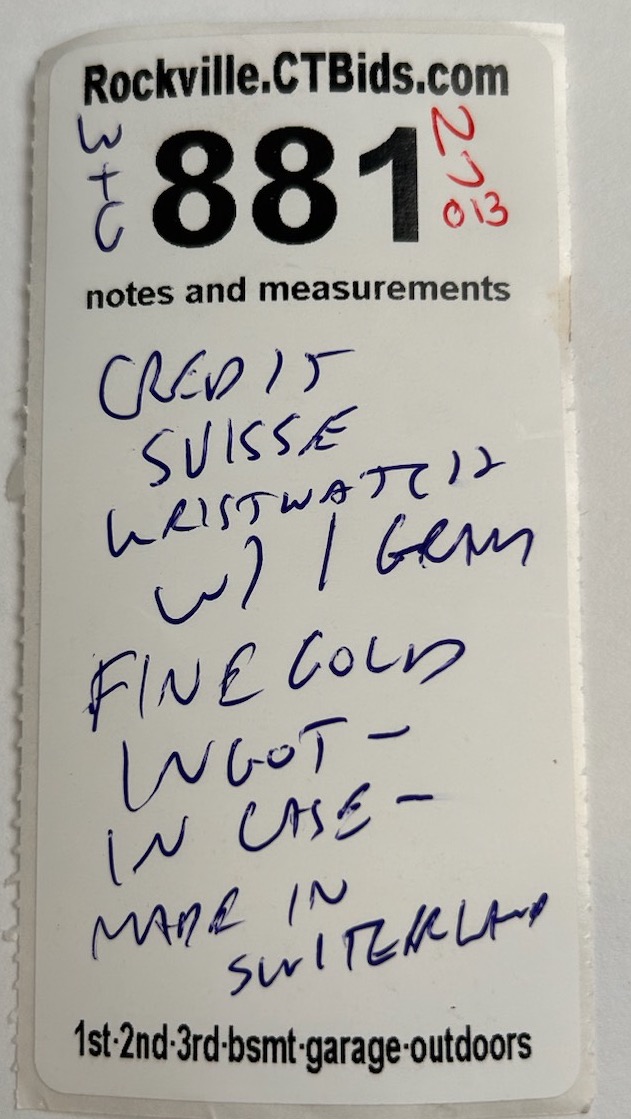 Rockville.CTBids.com
W+C
881
notes and measurements
CREDIT
SUISSE
WRISTWATCH
W/ 1 GRAM
FINE GOLD
INGOT -
IN CASE -
MADE IN
SWITERLAND
1st·2nd·3rd·bsmt·garage·outdoors